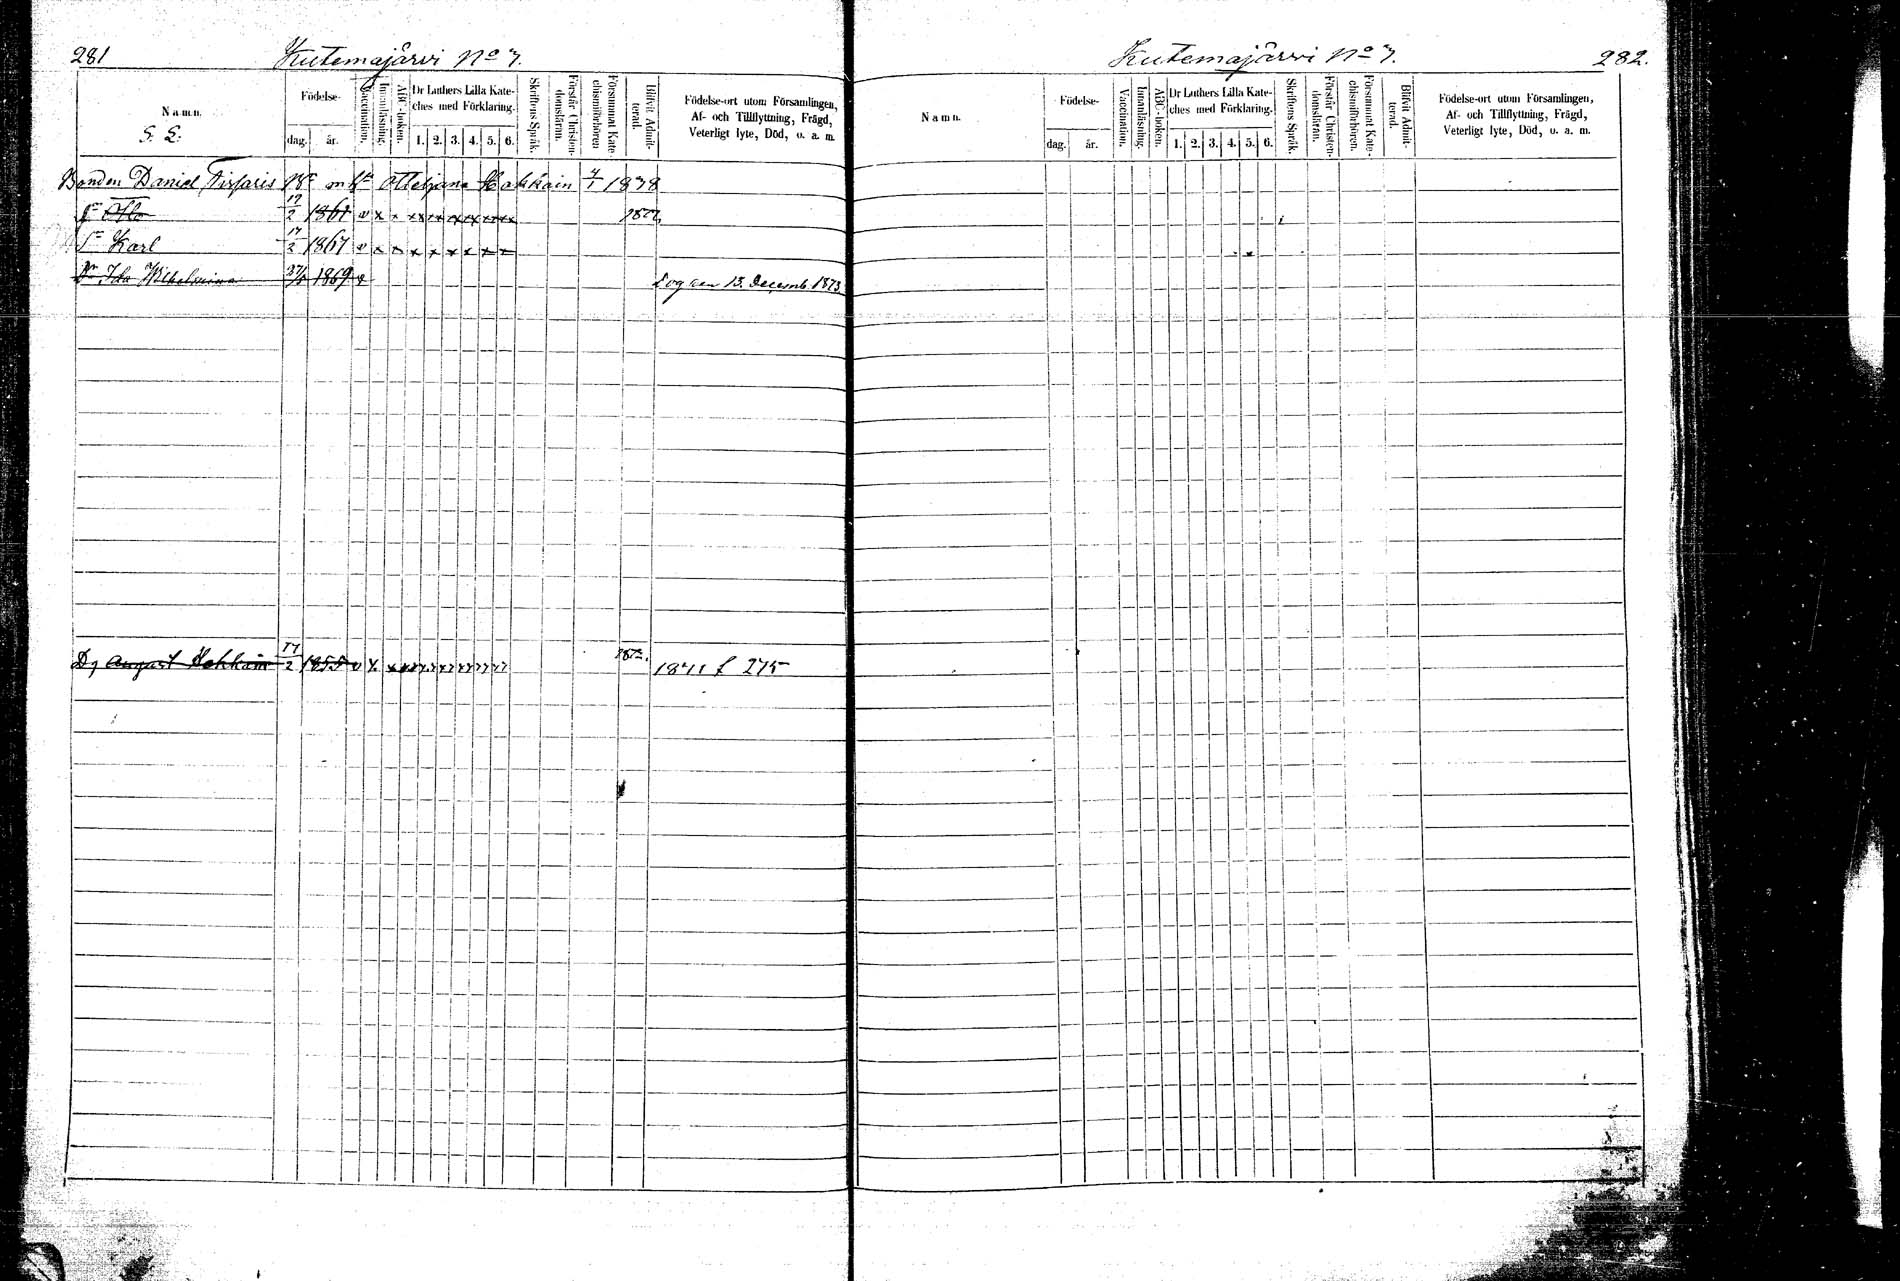 281 Kutemajärvi No 7.
Namn.
S. S.
Födelse-
dag. år.
Vaccination.
Innanläsning.
ABC-boken.
Dr Luthers Lilla Kate-
ches med Förklaring.
1. 2. 3. 4. 5. 6.
Skriftens Språk.
Förstår Christen-
domsläran.
Försummat Kate-
chismiförhören
Blifvit Admit-
terad.
Födelse-ort utom Församlingen,
Af- och Tillflyttning, Frägd,
Veterligt lyte, Död, u. a. m.
Bonden Daniel 1878
Otto 17/2 1861 v x x xx xx xx xx xx xx
Karl 17/2 1867 v x x x x x x x x
Ida Wilhelmina 1869 v Dog den 13. Decemb. 1873
August 17/2 1855 v x f 275
Kutemajärvi No 7. 282.
Namn.
Födelse-
dag. år.
Vaccination.
Innanläsning.
ABC-boken.
Dr Luthers Lilla Kate-
ches med Förklaring.
1. 2. 3. 4. 5. 6.
Skriftens Språk.
Förstår Christen-
domsläran.
Försummat Kate-
chismiförhören.
Blifvit Admit-
terad.
Födelse-ort utom Församlingen,
Af- och Tillflyttning, Frägd,
Veterligt lyte, Död, u. a. m.